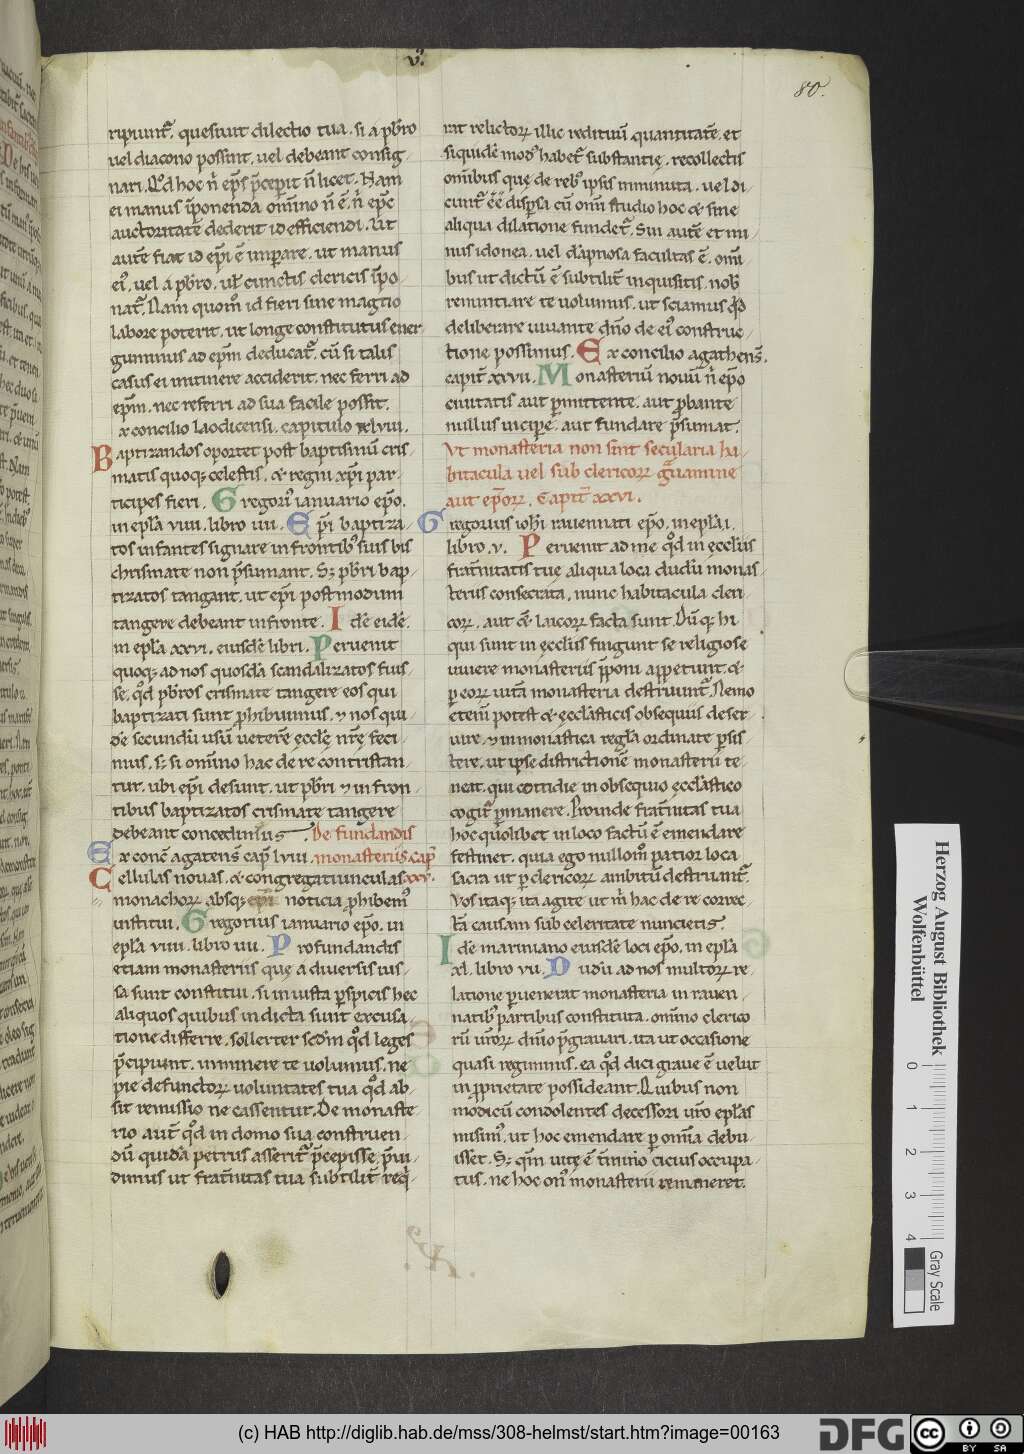 v.
80.
ripiunt᷑. quesiuit dilectio tua. si a p̄bro
uel diacono possint, uel debeant consig
nari. Qd̓ hoc n̄ ep̄s p̄ceperit n̄ licet. Nam
ei manus īponenda om̄ino n̄ ē, n̄ ep̄c
auctoritatē dederit id efficiendi. Ut
autē fiat id ep̄i ē imperare. ut manus
ei᷒, uel a p̄bro. ut̄ cunctis clericis īpo
nat᷑. Nam quom̊ id fieri sine magno
labore poterit. ut longe constitutus ener
guminus ad ep̄m deducat᷑. cū si talis
casus ei in itinere acciderit. nec ferri ad
ep̄m. nec referri ad sua facile possit.
Ex concilio laodicensi. capitulo xlviii.
Baptizandos oportet post baptismū cris
matis quoq; celestis, & regni xp̄i par
ticipes fieri. Gregori᷒ ianuario ep̄o.
in ep̄la viiii. libro iiii. Ep̄i baptiza
tos infantes signare in frontib᷒ suis bis
chrismate non p̄sumant. S; p̄bri bap
tizatos tangant, ut ep̄i postmodum
tangere debeant in fronte. Idē eidē.
in ep̄la xxvi. eiusdē libri. Peruenit
quoq; ad nos quosdā scandalizatos fuis
se. qd̓ p̄bros crismate tangere eos qui
baptizati sunt ꝓhibuimus. ⁊ nos qui
de secundū usū ueterē ęcclę nr̄ę feci
mus. s; si om̄ino hac de re contristan
tur. ubi ep̄i desunt. ut p̄bri ⁊ in fron
tibus baptizatos crismate tangere
debeant concedimus. De fundandis
Ex conc̄ agatens̄ cap̄ lviii. monasteriis. cap̄
Cellulas nouas. & congregatiunculas xxv.
monachoꝝ absq; ep̄i noticia ꝓhibem᷒
institui. Gregorius ianuario ep̄o. in
ep̄la viiii. libro iiii. Pro fundandis
etiam monasteriis quę a diuersis ius
sa sunt constitui. si in iusta ꝑspicis hec
aliquos quibus indicta sunt excusa
tione differre. sollerter sed̄m qd̓ leges
p̄cipiunt. imminere te uolumus. ne
pie defunctoꝝ uoluntates tua qd̓ ab
sit remissio ne cassentur. De monaste
rio aut̄ qd̓ in domo sua construen
dū quidā petrus asserit᷑ p̄cepisse. p̄ui
dimus ut frat̄nitas tua subtilit̄ req̄
rat relictoꝝ illic redituū quantitatē. et
siquidē mod᷒ habet᷑ substantię. recollectis
om̄ibus quę de reb᷒ ipsis imminuta. uel di
cunt᷑ ēē disꝑsa cū om̄i studio hoc & sine
aliqua dilatione fundet᷑. Sin autē et mi
nus idonea. uel dāpnosa facultas ē. om̄i
bus ut dictū ē subtilit̄ inquisitis. nob̄
renuntiare te uolumus. ut sciamus qd̓
deliberare uiuante dn̄o de ei᷒ construc
tione possimus. Ex concilio agathens̄.
capit̄ xxvii. Monasteriū nouū n̄ ep̄o
ciuitatis aut ꝑmittente. aut ꝓbante
nullus incipe. aut fundare p̄sumat.
Ut monasteria non sint secularia ha
bitacula uel sub clericoꝝ gͣuamine
aut ep̄oꝝ. Capit̄ xxvi.
Gregorius ioh̄i rauennati ep̄o. in ep̄la i.
libro. v. Peruenit ad me qd̓ in ęccl̄iis
frat̄nitatis tuę aliqua loca dudū monas
teriis consecrata. nunc habitacula cleri
coꝝ. aut & laicoꝝ facta sunt. Dūq; hi
qui sunt in ęccl̄iis fingunt se religiose
uiuere monasteriis p̄poni appetunt. &
ꝑ eoꝝ uitā monasteria destruunt᷑. Nemo
etenī potest & ęccl̄asticis obsequiis deser
uire. ⁊ in monastica regl̄a ordinate ꝑsis
tere. ut ipse districtionē monasterii te
neat. qui cottidie in obsequio ęccl̄astico
cogit᷑ ꝑmanere. Proinde frat̄nitas tua
hoc quolibet in loco factū ē emendare
festinet. quia ego nullom̊ patior loca
sacra ut ꝑ clericoꝝ ambitū destruant᷑.
Vos itaq; ita agite ut m̄ hac de re correc
ta causam sub celeritate nuncietis.
Idē mariniano eiusdē loci ep̄o. in ep̄la
xl. libro vii. Dudū ad nos multoꝝ re
latione ꝑuenerat monasteria in rauen
natib᷒ partibus constituta. om̄ino clerico
rū ur̄oꝝ dn̄io p̄grauari. ita ut occasione
quasi regiminis. ea qd̓ dici graue ē uelut
in ꝓprietate possideant. Quibus non
modicū condolentes decessori ur̄o ep̄las
misim᷒. ut hoc emendare ꝑ om̄ia debu
isset. S; qm̄ uite ē t̄mino cicius occupa
tus. ne hoc on᷒ monasteriū remaneret.
Herzog August Bibliothek
Wolfenbüttel
0 1 2 3 4
Gray Scale
(c) HAB http://diglib.hab.de/mss/308-helmst/start.htm?image=00163
DFG
cc BY SA